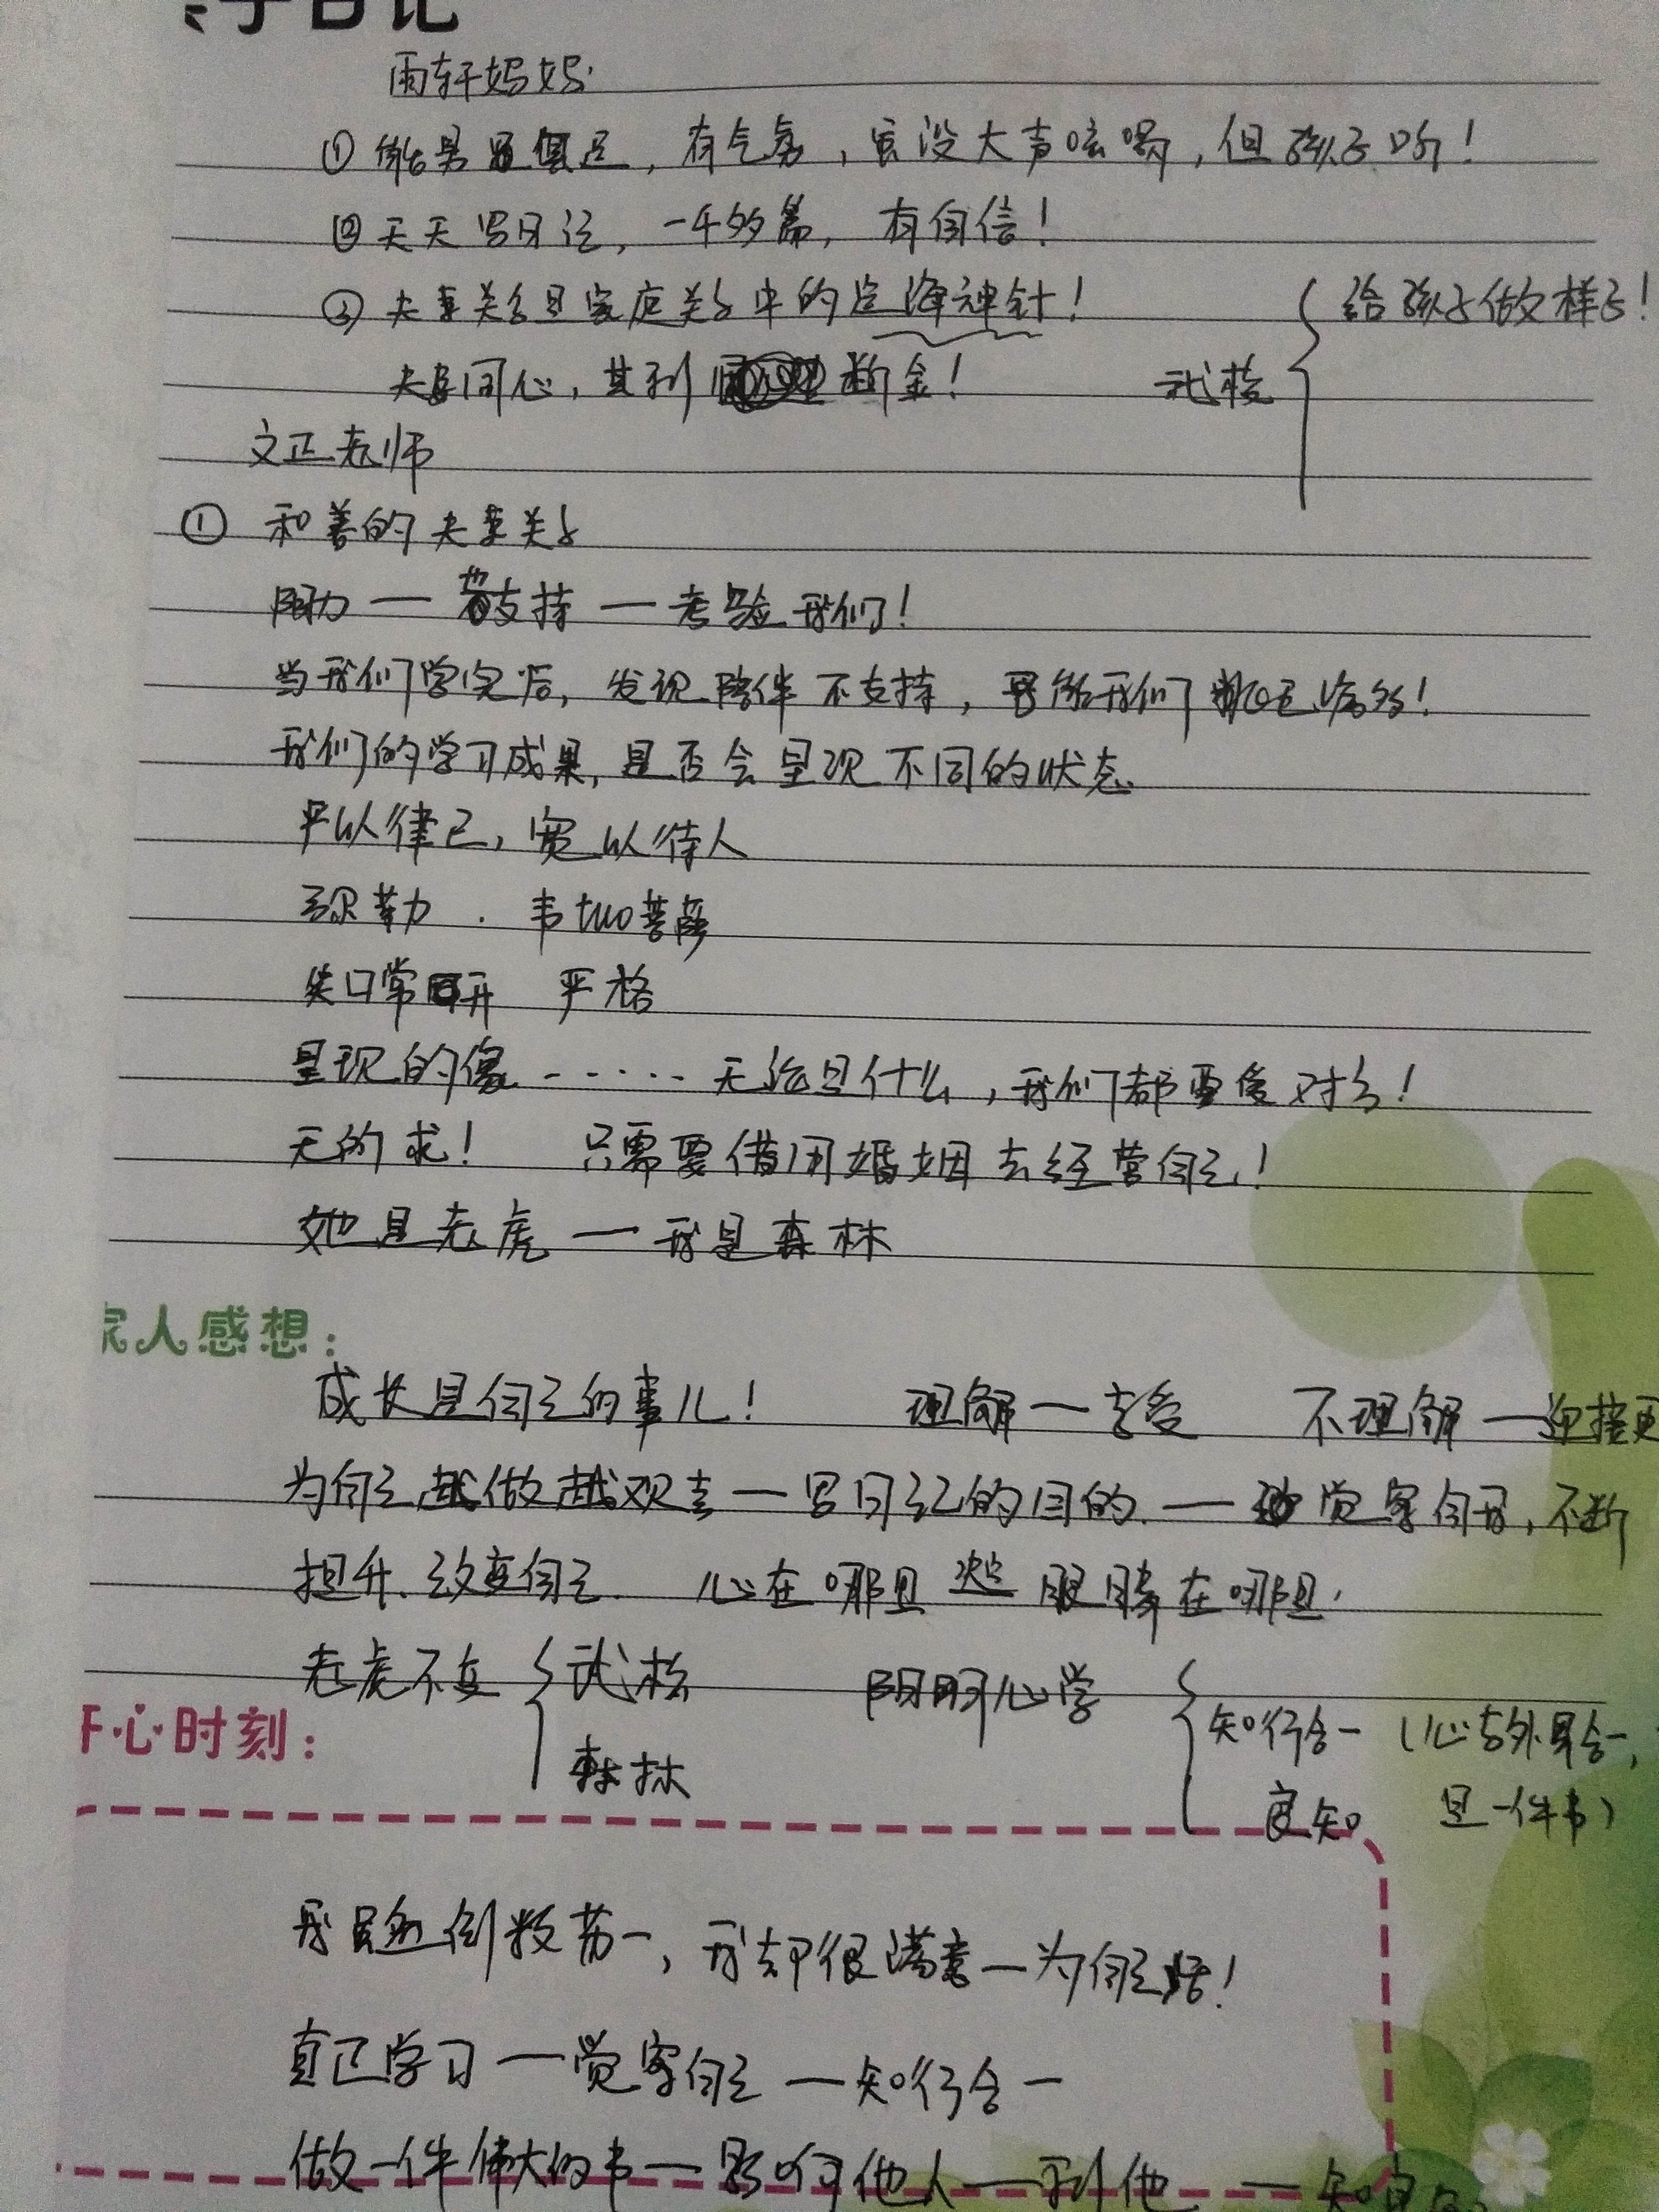 子日记
雨轩妈妈:
①能量具足,有气场,虽没大声吆喝,但孩子听!
②天天写日记,一千多篇,有自信!
③夫妻关系是家庭关系中的定海神针!
给孩子做样子!
夫妻同心,其利断金!
武松
文正老师
① 和善的夫妻关系
阻力一支持一考验我们!
当我们学完后,发现陪伴不支持,是给我们挑毛病!
我们的学习成果,是否会呈现不同的状态
严以律己,宽以待人
弥勒 . 韦tuo菩萨
笑口常开 严格
呈现的像……无论是什么,我们都要面对!
无所求! 只需要借用婚姻去经营自己!
她是老虎一我是森林
家人感想:
成长是自己的事儿! 理解一去爱 不理解一迎接
为自己越做越欢喜一写日记的目的.一觉察自我,不断
提升.改变自己. 心在哪里 眼睛在哪里.
老虎不变 武松 阳明心学
知行合一(心与外界合一,
开心时刻:
森林
良知 是一件事)
我是倒数第一,我却很满意一为自己活!
真正学习一觉察自己一知行合一
做一件伟大的事一影响他人一利他一